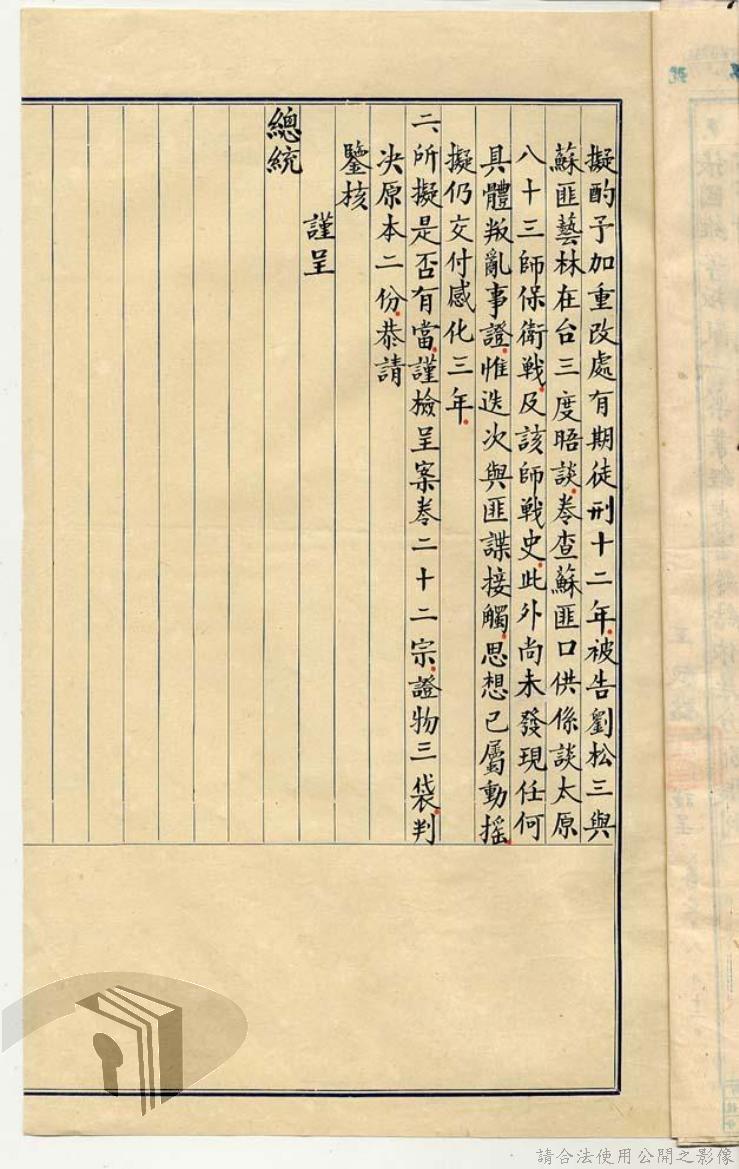 擬酌予加重改處有期徒刑十二年.被告劉松三與
蘇匪藝林在台三度晤談.卷查蘇匪口供係談太原
八十三師保衛戰.及該師戰史.此外尚未發現任何
具體叛亂事證.惟迭次與匪諜接觸.思想已屬動搖.
擬仍交付感化三年.
二、所擬是否有當.謹檢呈案卷二十二宗.證物三袋.判
決原本二份.恭請
鑒核
謹呈
總統
請合法使用公開之影像